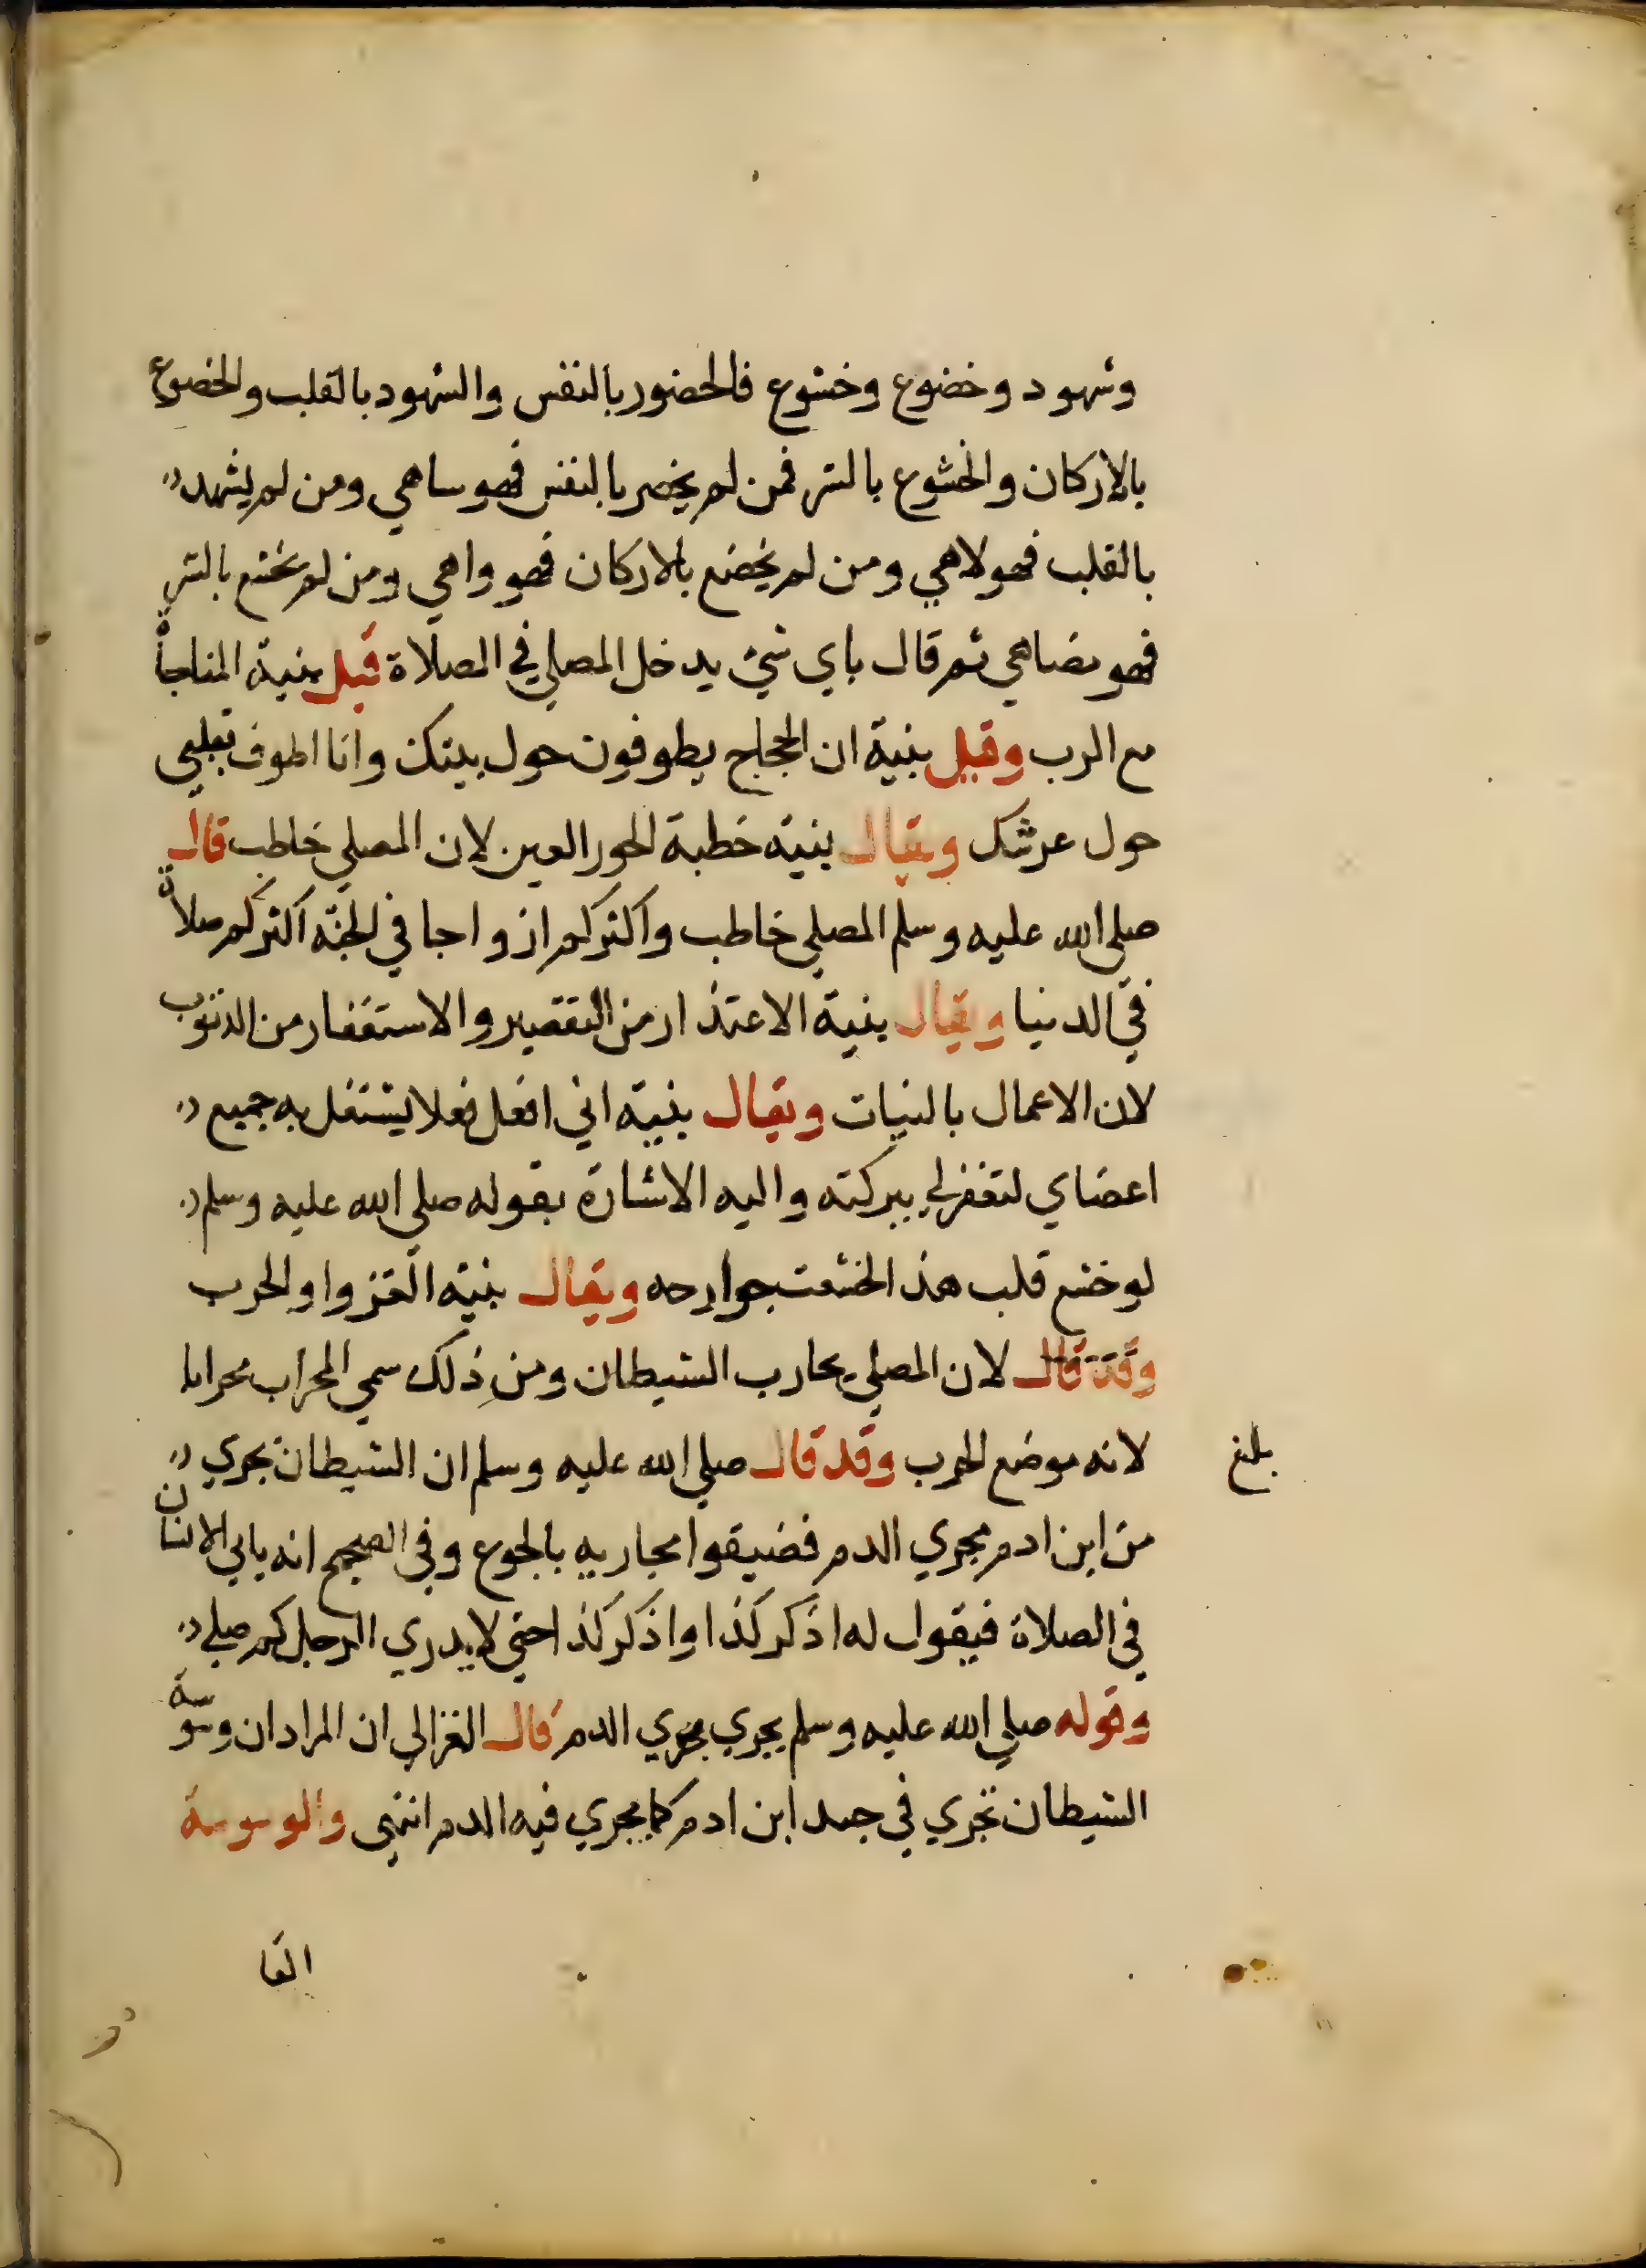 وشهود وخضوع وخشوع فالحضور بالنفس والشهود بالقلب والخضوع
بالاركان والخشوع بالسر فمن لم يحضر بالنفس فهو ساهي ومن لم يشهد
بالقلب فهو لاهي ومن لم يخضع بالاركان فهو واهي ومن لم يخشع بالسر
فهو مضاهي ثم قال باي شيئ يدخل المصلي في الصلاة قيل بنية المناجاة
مع الرب وقيل بنية ان الحجاج يطوفون حول بيتك وانا اطوف بقلبي
حول عرشك ويقال بنية خطبة الحور العين لان المصلي خاطب قال
صلى الله عليه وسلم المصلي خاطب واكثركم ازواجا في الجنة اكثركم صلاة
في الدنيا ويقال بنية الاعتذار من التقصير والاستغفار من الذنوب
لان الاعمال بالنيات ويقال بنية اني افعل فعلا يشتغل به جميع
اعضاي لتغفر لي ببركته واليه الاشارة بقوله صلى الله عليه وسلم
لو خشع قلب هذا لخشعت جوارحه ويقال بنية الغزوا والحرب
وقد قال لان المصلي يحارب الشيطان ومن ذلك سمي المحراب محرابا
لانه موضع الحرب وقد قال صلى الله عليه وسلم ان الشيطان يجري
بلغ
من ابن ادم مجري الدم فضيقوا مجاريه بالجوع وفي الصحيح انه ياتي الانسان
في الصلاة فيقول له اذكر كذا واذكر كذا حتي لا يدري الرجل كم صلي
وقوله صلى الله عليه وسلم يجري مجري الدم قال الغزالي ان المراد ان وسوسة
الشيطان تجري في جسد ابن ادم كما يجري فيه الدم انتهى والوسوسة
القا